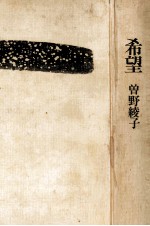 希望
曽野綾子